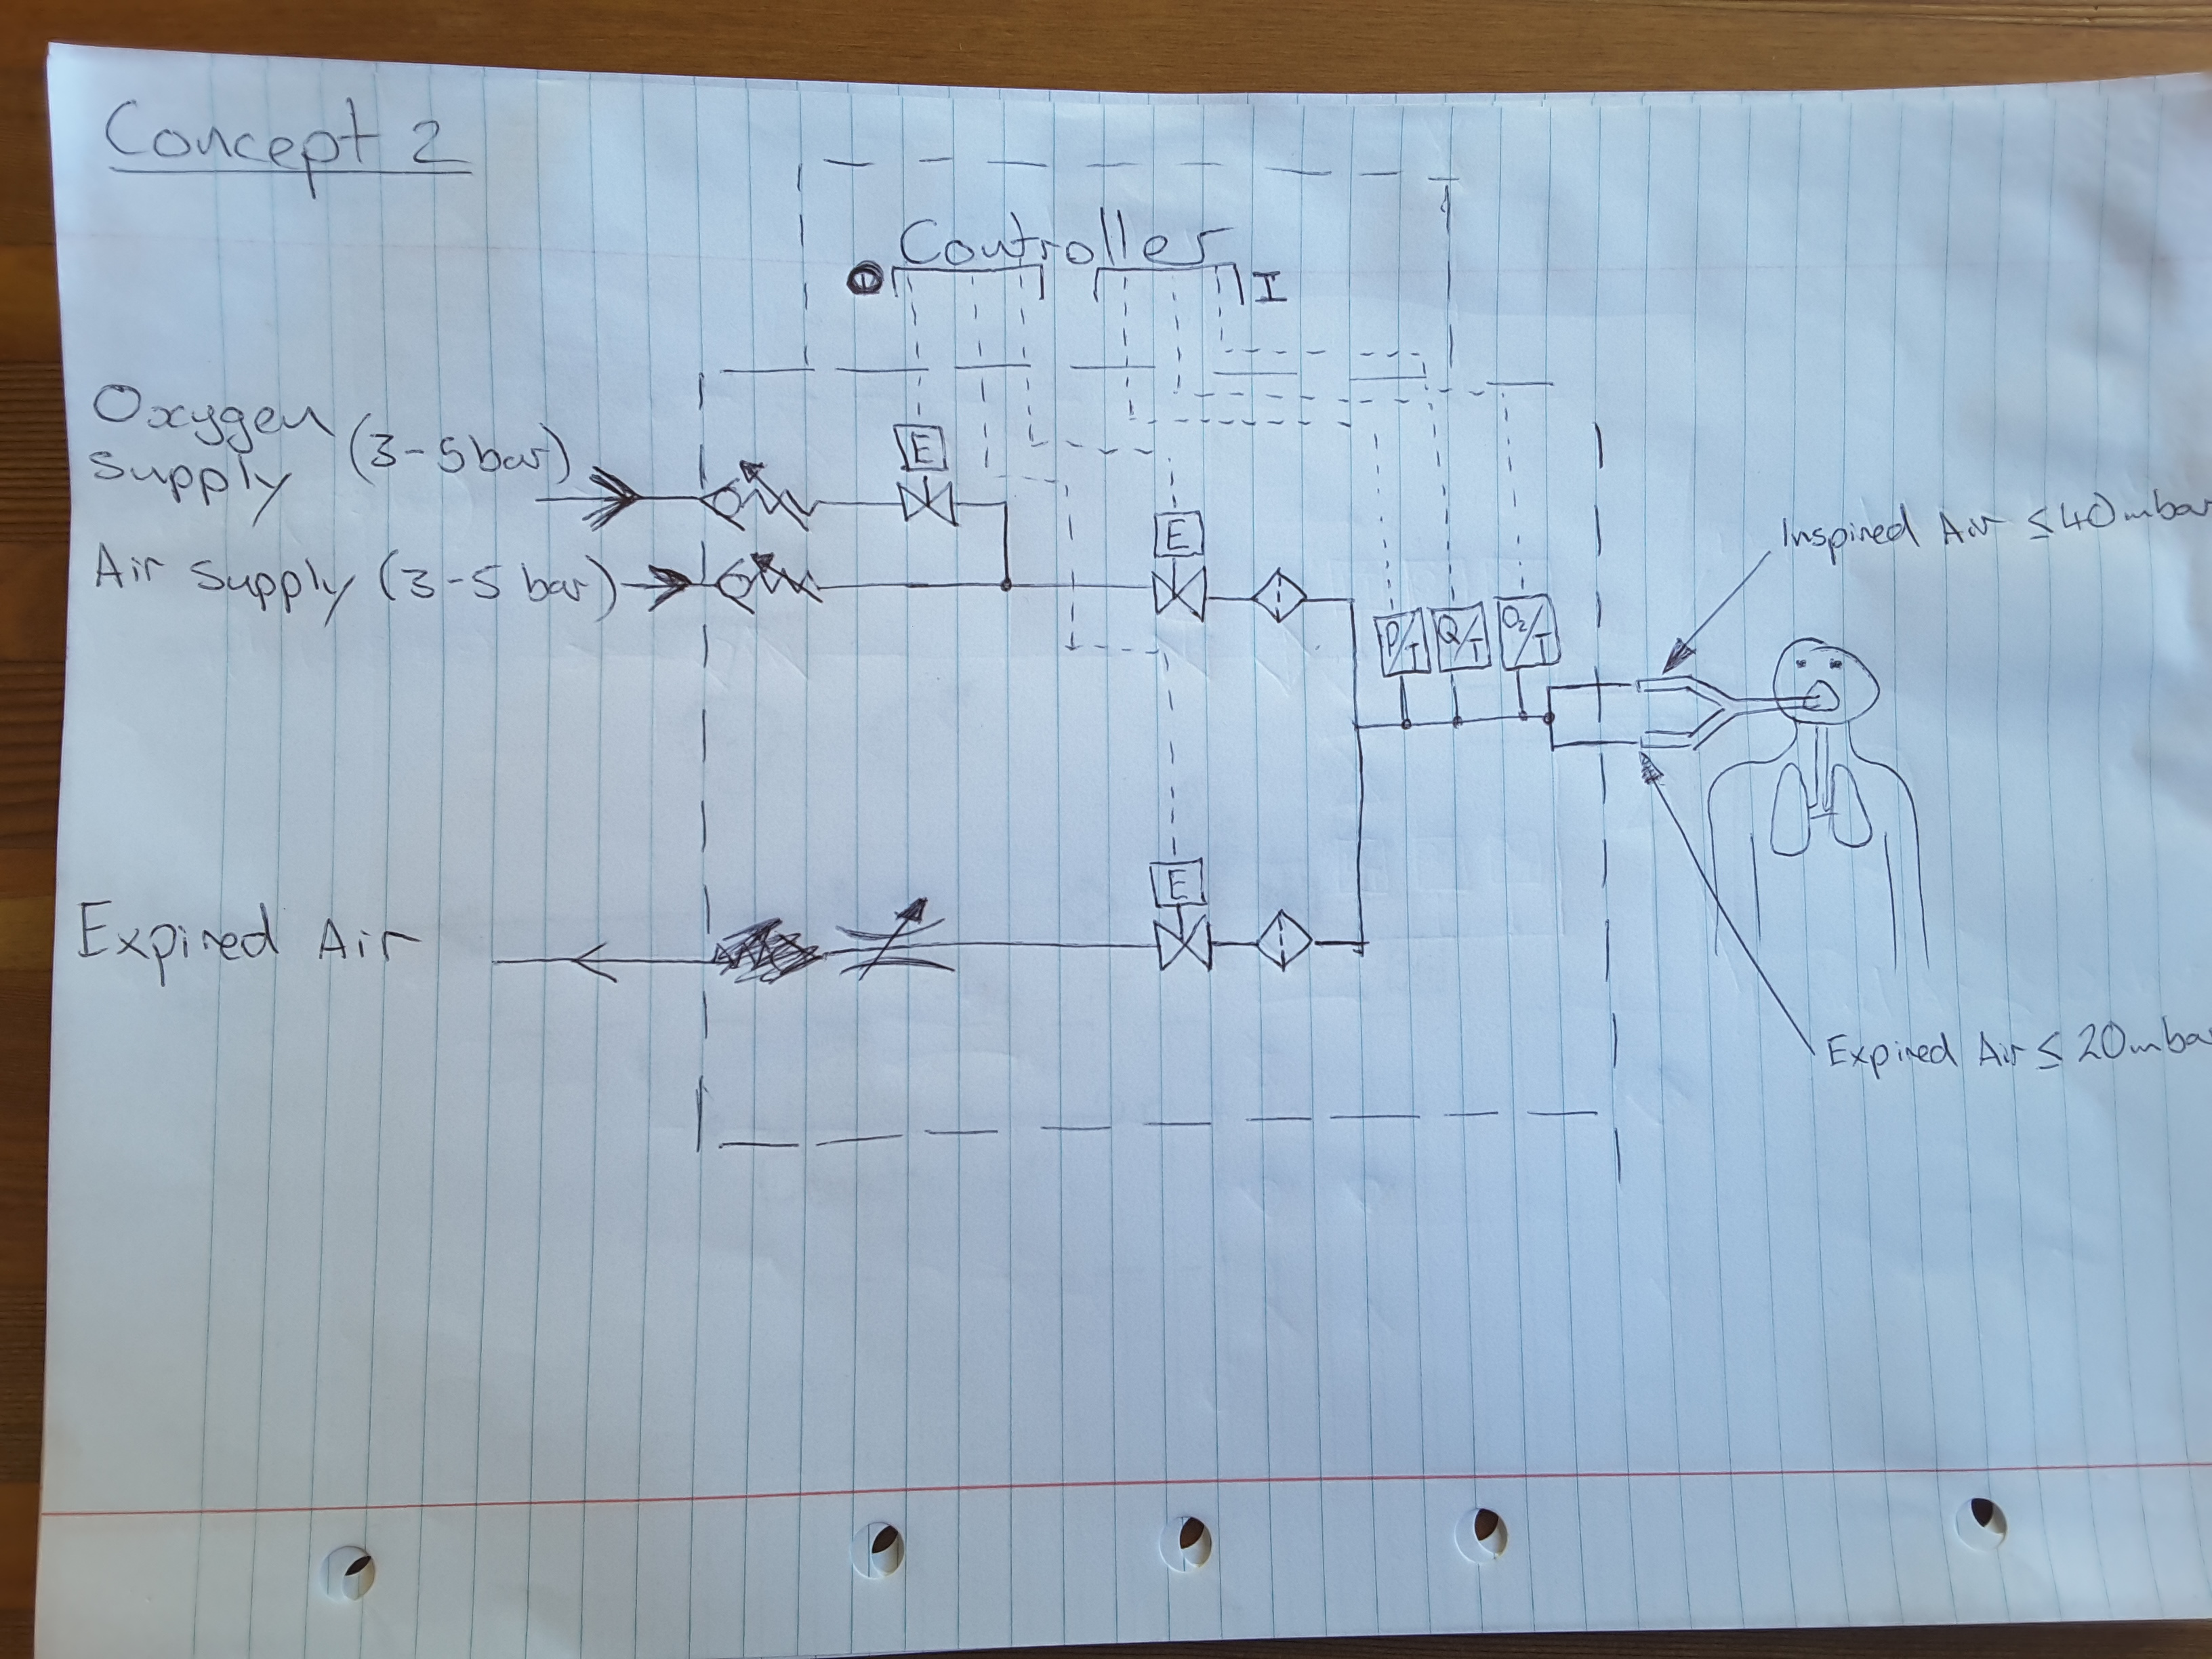 Concept 2
Controller
O
I
Oxygen
Supply (3-5bar)
Air Supply (3-5 bar)
E
E
P/T
Q/T
O2/T
Inspired Air ≤ 40mbar
E
Expired Air
Expired Air ≤ 20mbar